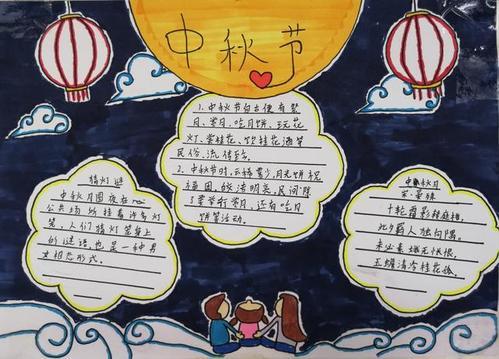 中秋节
1.中秋节自古便有祭
月、赏月、吃月饼、玩花
灯、赏桂花、饮桂花酒等
民俗,流传至今。
2.中秋节时,云稀雾少,月光皎
洁明亮,民间除
了要举行赏月,还有吃月
饼等活动。
猜灯谜
中秋月圆夜在
公共场所挂着许多灯
笼,人们猜灯笼身上
的谜语,也是一种男
女相恋形式。
中秋月
晏殊
十轮霜影转庭梧,
此夕羁人独向隅。
未必素娥无怅恨,
玉蟾清冷桂花孤。